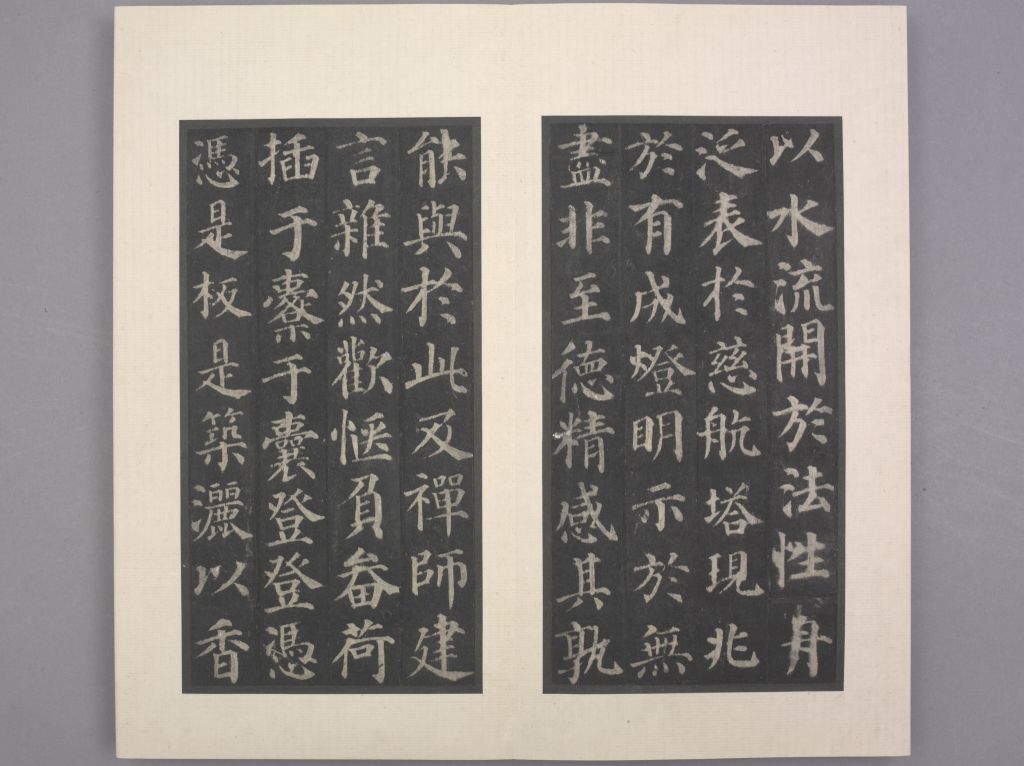 以水流開於法性舟
泛表於慈航塔現兆
於有成燈明示於無
盡非至德精感其孰
能與於此及禪師建
言雜然歡愜負畚荷
插于橐于囊登登憑
憑是板是築灑以香